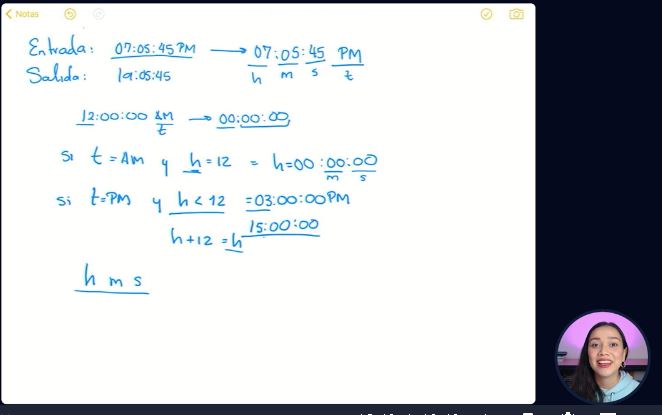 Notas
Entrada: 07:05:45PM → 07:05:45 PM
h m s t
Salida: 19:05:45
12:00:00 AM → 00:00:00
t
Si t = AM y h = 12 = h=00:00:00
m s
Si t=PM y h < 12 = 03:00:00PM
h+12 = h 15:00:00
h m s